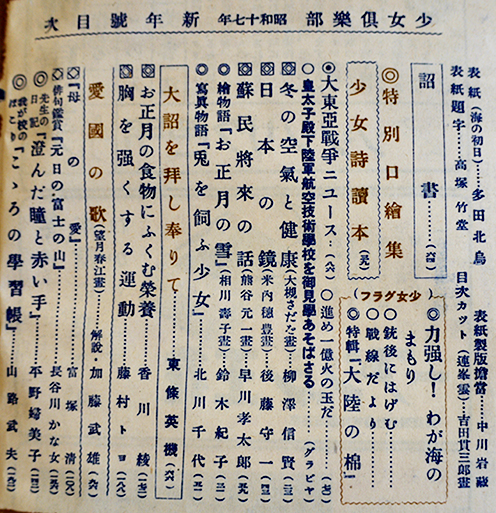 少女倶樂部 昭和十七年 新年號目次
表紙（海の初日）…多田北烏
表紙題字……高塚竹堂
表紙製版擔當……中川岩藏
目次カット（連峯雲）…吉田貫三郎畫
詔書……
◎特別口繪集
少女詩讀本
（少女グラフ）
◎力强し！わが海のまもり
○銃後にはげむ
○戰線だより
◎特輯「大陸の棉」
○大東亞戰爭ニユース…
○進め一億火の玉だ
○皇太子殿下陸軍航空技術學校を御見學あそばさる…（グラビヤ）
◎冬の空氣と健康（大槻さだを畫）柳澤信賢
◎日本の鏡（米內穗豊畫）後藤守一
◎蘇民將來の話（熊谷元一畫）早川孝太郎
◎繪物語「お正月の雪」（相川壽子畫）鈴木紀子
◎寫眞物語「兎を飼ふ少女」…北川千代
大詔を拜し奉りて…東條英機
◎お正月の食物にふくむ榮養…香川綾
◎胸を强くする運動…藤村トヨ
愛國の歌（望月春江畫）解說・加藤武雄
◎「母の愛」…富塚清
◎俳句鑑賞「元日の富士の山」…長谷川かな女
◎先生の日記「澄んだ瞳と赤い手」…平野婦美子
◎我が校のほこり「こゝろの學習帳」…山路武夫